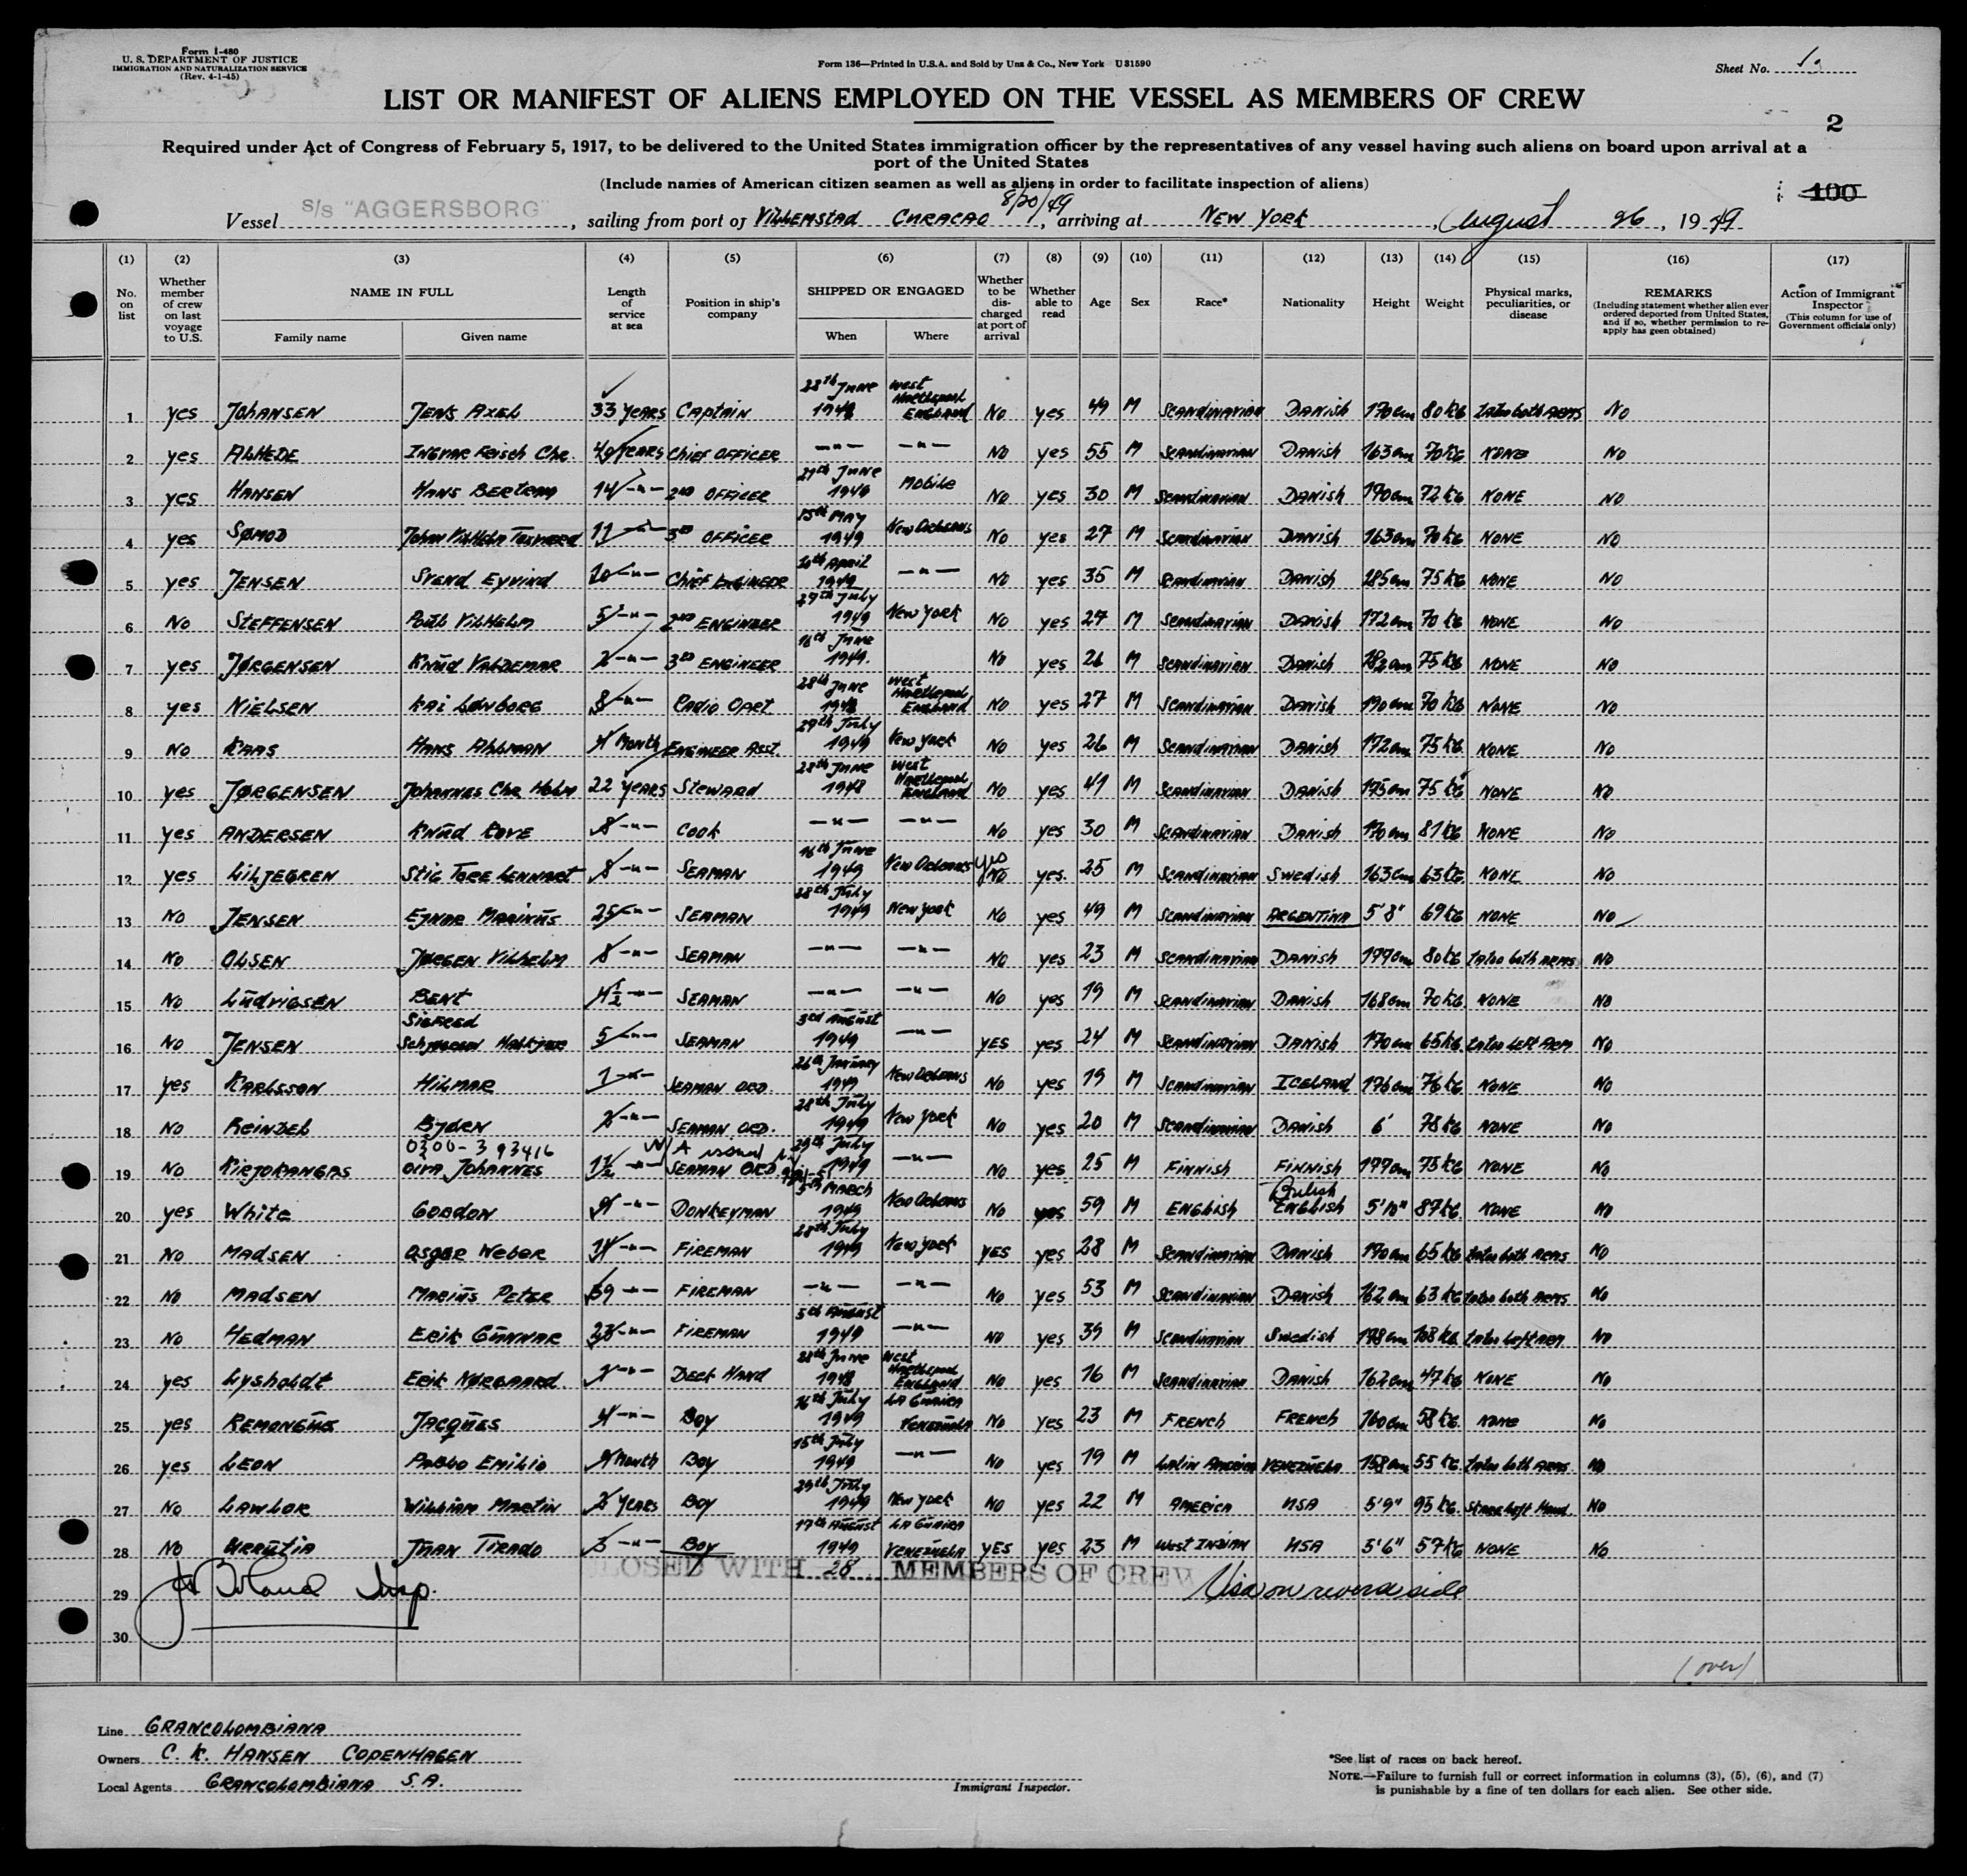 Form I-480
U. S. DEPARTMENT OF JUSTICE
IMMIGRATION AND NATURALIZATION SERVICE
(Rev. 4-1-45)
Form 136—Printed in U.S.A. and Sold by Unz & Co., New York U31590
Sheet No.
LIST OR MANIFEST OF ALIENS EMPLOYED ON THE VESSEL AS MEMBERS OF CREW
2
Required under Act of Congress of February 5, 1917, to be delivered to the United States immigration officer by the representatives of any vessel having such aliens on board upon arrival at a
port of the United States
(Include names of American citizen seamen as well as aliens in order to facilitate inspection of aliens)
100
8/20/49
Vessel S/S "AGGERSBORG", sailing from port of Villemstad Curacao, arriving at New York, August 26, 1949
(1) (2) (3) (4) (5) (6) (7) (8) (9) (10) (11) (12) (13) (14) (15) (16) (17)
No. on list Whether member of crew on last voyage to U.S. NAME IN FULL Family name Given name Length of service at sea Position in ship's company SHIPPED OR ENGAGED When Where Whether to be discharged at port of arrival Whether able to read Age Sex Race* Nationality Height Weight Physical marks, peculiarities, or disease REMARKS (Including statement whether alien ever ordered deported from United States, and if so, whether permission to re-apply has geen obtained) Action of Immigrant Inspector (This column for use of Government officials only)
1 yes Johansen Jens Axel 33 years Captain 28th June 1948 West Hartlepool England No yes 49 M Scandinavian Danish 170cm 80kg Tatoo both arms No
2 yes Ahhede Ingvar Chr. years Chief Officer —"— —"— No yes 55 M Scandinavian Danish 163cm 70kg None No
3 yes Hansen Hans Bertram 14 —"— 2nd Officer 27th June 1949 Mobile No yes 30 M Scandinavian Danish 190cm 72kg None No
4 yes Sømod John Vilhelm 11 —"— 3rd Officer 15th May 1949 New Orleans No yes 27 M Scandinavian Danish 163cm 70kg None No
5 yes Jensen Svend Eyvind 20 —"— Chief Engineer April 1949 —"— No yes 35 M Scandinavian Danish 185cm 75kg None No
6 No Steffensen Poul Vilhelm 5 —"— 2nd Engineer 29th July 1949 New York No yes 27 M Scandinavian Danish 172cm 70kg None No
7 yes Jørgensen Knud Valdemar 2 —"— 3rd Engineer 16th June 1949. No yes 26 M Scandinavian Danish 182cm 75kg None No
8 yes Nielsen Kai Lønborg 8 —"— Radio Opert. 28th June 1948 West Hartlepool England No yes 27 M Scandinavian Danish 190cm 70kg None No
9 No Kaas Hans Ahlman 4 Month Engineer Asst. 29th July 1949 New York No yes 26 M Scandinavian Danish 172cm 75kg None No
10 yes Jørgensen Johannes Chr Holm 22 years Steward 28th June 1948 West Hartlepool England No yes 41 M Scandinavian Danish 175cm 75kg None No
11 yes Andersen Knud Kove 8 —"— Cook —"— —"— No yes 30 M Scandinavian Danish 170cm 81kg None No
12 yes Liljegren Stig Tore Lennart 8 —"— Seaman 16th June 1949 New Orleans yes No yes. 25 M Scandinavian Swedish 163cm 63kg None No
13 No Jensen Ejnar Marinus 25 —"— Seaman 28th July 1949 New York No yes 49 M Scandinavian Argentina 5'8" 69kg None No
14 No Olsen Jørgen Vilhelm 8 —"— Seaman —"— —"— No yes 23 M Scandinavian Danish 177cm 80kg Tatoo both arms No
15 No Ludvigsen Bent 4½ —"— Seaman —"— —"— No yes 19 M Scandinavian Danish 168cm 70kg None No
16 No Jensen Sigfred 5 —"— Seaman 3rd August 1949 —"— yes yes 24 M Scandinavian Danish 170cm 65kg Tatoo left arm No
17 yes Karlsson Hilmar 1 —"— Seaman Ord. 26th January 1949 New Orleans No yes 19 M Scandinavian Iceland 176cm 76kg None No
18 No Reindel Bjørn 2 —"— Seaman Ord. 28th July 1949 New York No yes 20 M Scandinavian Danish 6' 78kg None No
0300-393416 W/A issued
19 No Kirjokangas Oiva Johannes 1½ —"— Seaman Ord 29th July 1949 —"— No yes 25 M Finnish Finnish 177cm 75kg None No
20 yes White Gordon —"— Donkeyman 5th March 1949 New Orleans No yes 59 M English British English 5'10" 87kg. None No
21 No Madsen Asger Weber —"— Fireman 28th July 1949 New York yes yes 28 M Scandinavian Danish 170cm 65kg Tatoo both arms No
22 No Madsen Marius Peter 39 —"— Fireman —"— —"— No yes 53 M Scandinavian Danish 162cm 63kg Tatoo both arms No
23 No Hedman Erik Gunnar 23 —"— Fireman 5th August 1949 —"— No yes 39 M Scandinavian Swedish 178cm 108kg Tatoo left arm No
24 yes Lysholdt Erik Nørgaard. —"— Deck Hand 28th June 1948 West Hartlepool England No yes 16 M Scandinavian Danish 162cm 47kg None No
25 yes Remongius Jacques 4 —"— Boy 16th July 1949 La Guaira Venezuela No yes 23 M French French 160cm 58kg. None No
26 yes Leon Pablo Emilio Month Boy 15th July 1949 —"— No yes 19 M Latin America Venezuela 158cm 55kg. Tatoo both arms. No
27 No Lawlor William Martin 2 years Boy 29th July 1949 New York No yes 22 M America USA 5'9" 95kg. Left Hand. No
28 No Urrutia Juan Tirado 3 —"— Boy 17th August 1949 La Guaira Venezuela yes yes 23 M West Indian USA 5'6" 57kg None No
CLOSED WITH 28 MEMBERS OF CREW
29 Insp. Visa on reverse side
30
(over)
Line Grancolombiana
Owners C. K. Hansen Copenhagen
Local Agents Grancolombiana S.A.
Immigrant Inspector.
*See list of races on back hereof.
NOTE.—Failure to furnish full or correct information in columns (3), (5), (6), and (7)
is punishable by a fine of ten dollars for each alien. See other side.